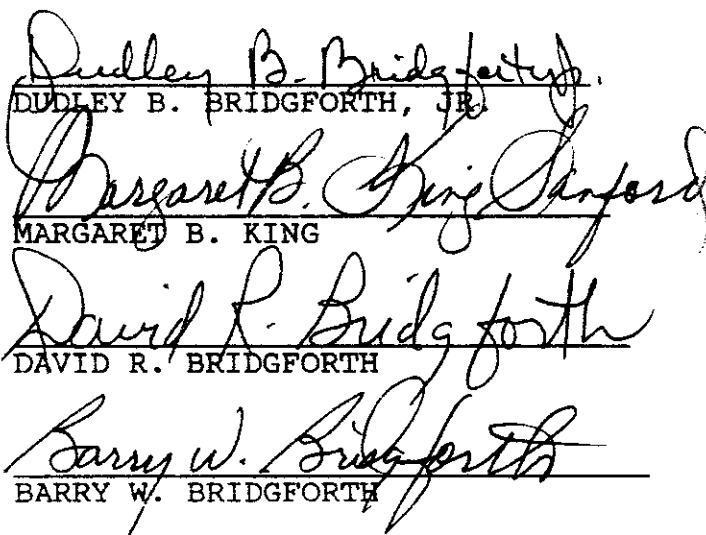 Dudley B. Bridgforth Jr.
DUDLEY B. BRIDGFORTH, JR.
Margaret B. King Sanford
MARGARET B. KING
David R. Bridgforth
DAVID R. BRIDGFORTH
Barry W. Bridgforth
BARRY W. BRIDGFORTH